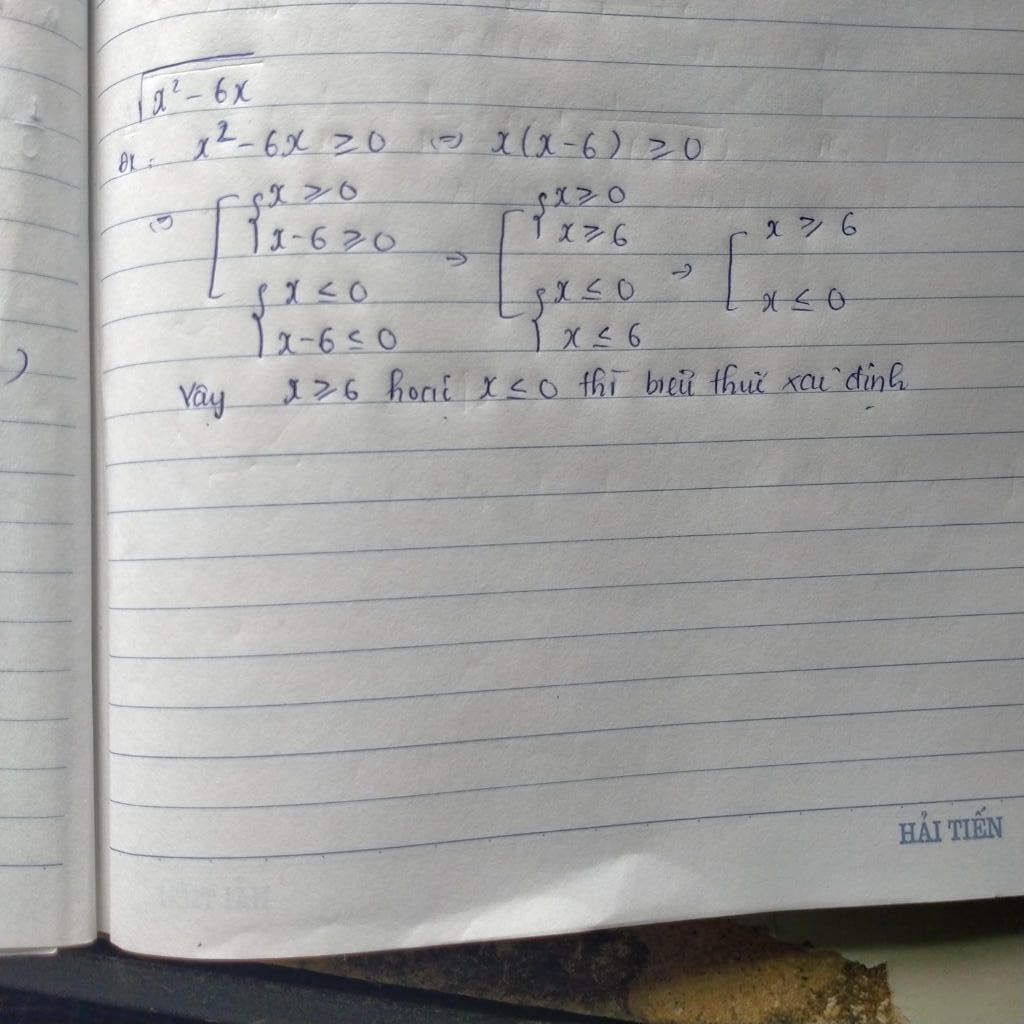 √(x² - 6x)
ĐK: x² - 6x ≥ 0 (=) x(x-6) ≥ 0
(=) [ { x ≥ 0 { x - 6 ≥ 0 { x ≤ 0 { x - 6 ≤ 0 => [ { x ≥ 0 { x ≥ 6 { x ≤ 0 { x ≤ 6 => [ x ≥ 6 x ≤ 0
Vậy x ≥ 6 hoặc x ≤ 0 thì biểu thức xác định
)
HẢI TIẾN